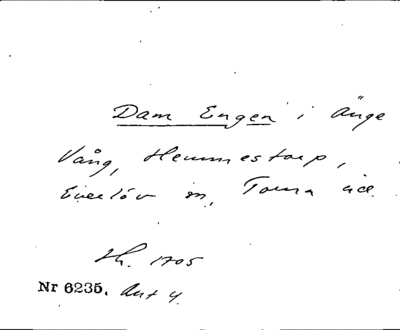 Dam Engen i Änge
Vång, Hemmestorp,
Everlöv sn, Torna hd.
Lh. 1705
Nr 6235. Akt 4.